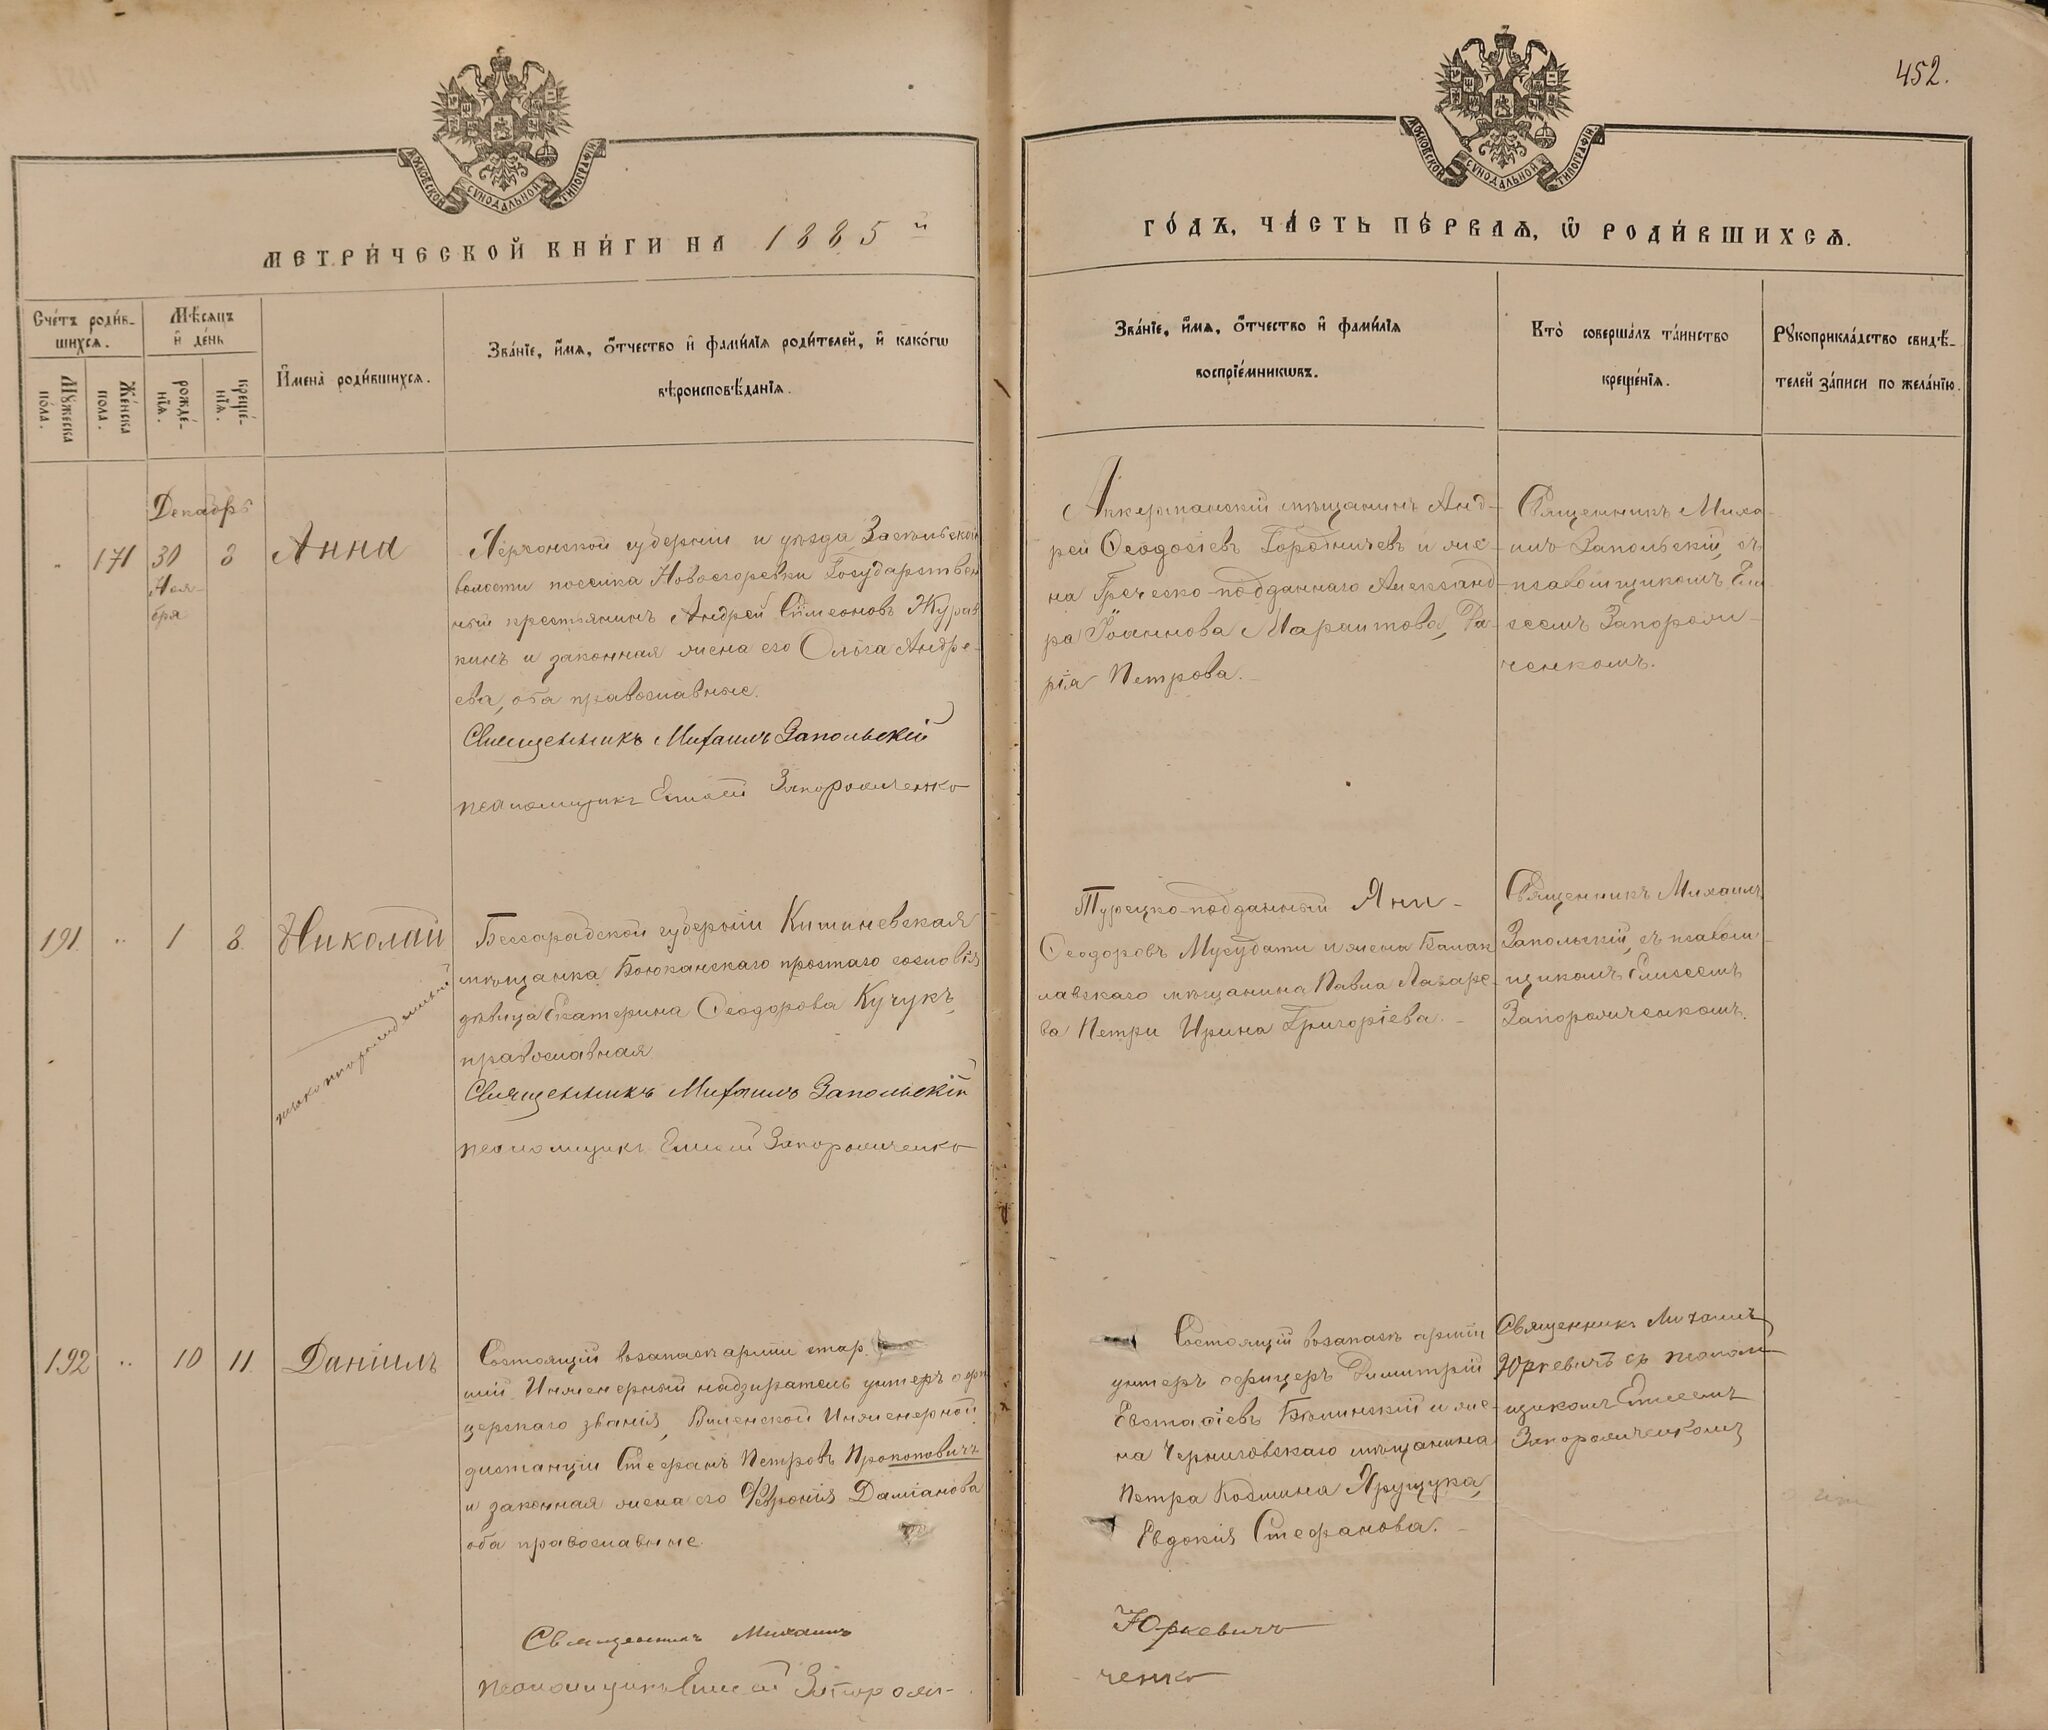 452.
МОСКОВСКОЙ СУНОДАЛЬНОЙ ТИПОГРАФІИ
МОСКОВСКОЙ СУНОДАЛЬНОЙ ТИПОГРАФІИ
МЕТРИ́ЧЕСКОЙ КНИ́ГИ НА 1885 й
ГО́ДЪ, ЧА́СТЬ ПЕ́РВАѦ, Ѿ РОДИ́ВШИХСѦ.
Сче́тъ роди́в-
шихсѧ.
Мꙋжеска
по́ла.
Же́нска
пола.
Мѣ́сѧцъ
и҆ де́нь
рожде́-
нїѧ.
креще́-
нїѧ.
И҆мена̀ роди́вшихсѧ.
Зва́нїе, и҆́мѧ, ѻ҆́тчество и҆ фами́лїѧ роди́телей, и҆ како́гѡ
вѣроисповѣ́данїѧ.
Зва́нїе, и҆́мѧ, ѻ҆́тчество и҆ фами́лїѧ
воспрїе́мникѡвъ.
Кто̀ соверша́лъ та́инство
креще́нїѧ.
Рꙋкоприкла́дство свидѣ́-
телей за́писи по жела́нїю.
Декабрь
" 171 30 3 Анна
Ноя-
бря
Херсонской губерніи и уѣзда Засельской
волости поселка Новоегоревки Государствен
ный крестьянинъ Андрей Сѵмеоновъ Журав
кинъ и законная жена его Ольга Андре-
ева, оба православные.
Священникъ Михаилъ Запольскій
псаломщикъ Елисей Запорожченко
Аккерманскій мѣщанинъ Анд-
рей Ѳеодосіевъ Городничевъ и же-
на Греческо-подданнаго Александ-
ра Іоаннова Мараитова, Да-
рія Петрова.
Священникъ Миха-
илъ Запольскій, съ
псаломщикомъ Ели-
сеемъ Запорож-
ченкомъ.
191. " 1 3. Николай
незаконнорожденный
Бессарабской губерніи Кишиневская
мѣщанка Боюканскаго простаго сословія
дѣвица Екатерина Ѳеодорова Кучукъ,
православная
Священникъ Михаилъ Запольскій
псаломщикъ Елисей Запорожченко
Турецко-подданный Яни-
Ѳеодоровъ Мусудати и жена Балак
лавскаго мѣщанина Павла Лазаре-
ва Петри Ирина Григоріева.
Священникъ Михаилъ
Запольскій, съ псалом-
щикомъ Елисеемъ
Запорожченкомъ.
192 " 10 11. Даніилъ
Состоящій въ запасѣ арміи стар-
шій Инженерный надзиратель унтеръ офи
церскаго званія, Виленской Инженерной
дистанціи Стефанъ Петровъ Прокоповичъ
и законная жена его Февронія Даміанова
оба православные
Состоящій въ запасѣ арміи
унтеръ офицеръ Димитрій
Евстафіевъ Бѣлинскій и же-
на Черниговскаго мѣщанина
Петра Козмина Хрущука,
Евдокія Стефанова.
Священникъ Михаилъ
Юркевичъ съ псалом-
щикомъ Елисеемъ
Запорожченкомъ
Священникъ Михаилъ Юркевичъ
псаломщикъ Елисей Запорож-ченко